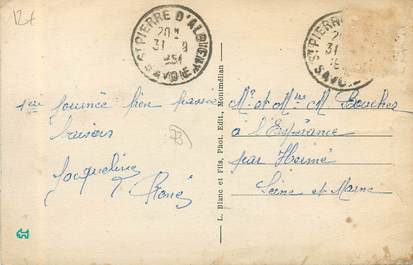 12f
ST PIERRE D'ALBIGNY
20
31 8
SAVOIE
ST PIERRE
31
SAVOIE
1ère journée bien passée
baisers
Jacqueline
René
73
L. Blanc et Fils, Phot. Edit., Montmélian
Mr et Mme M. Boucher
à l'Espérance
par Hermé
Seine et Marne